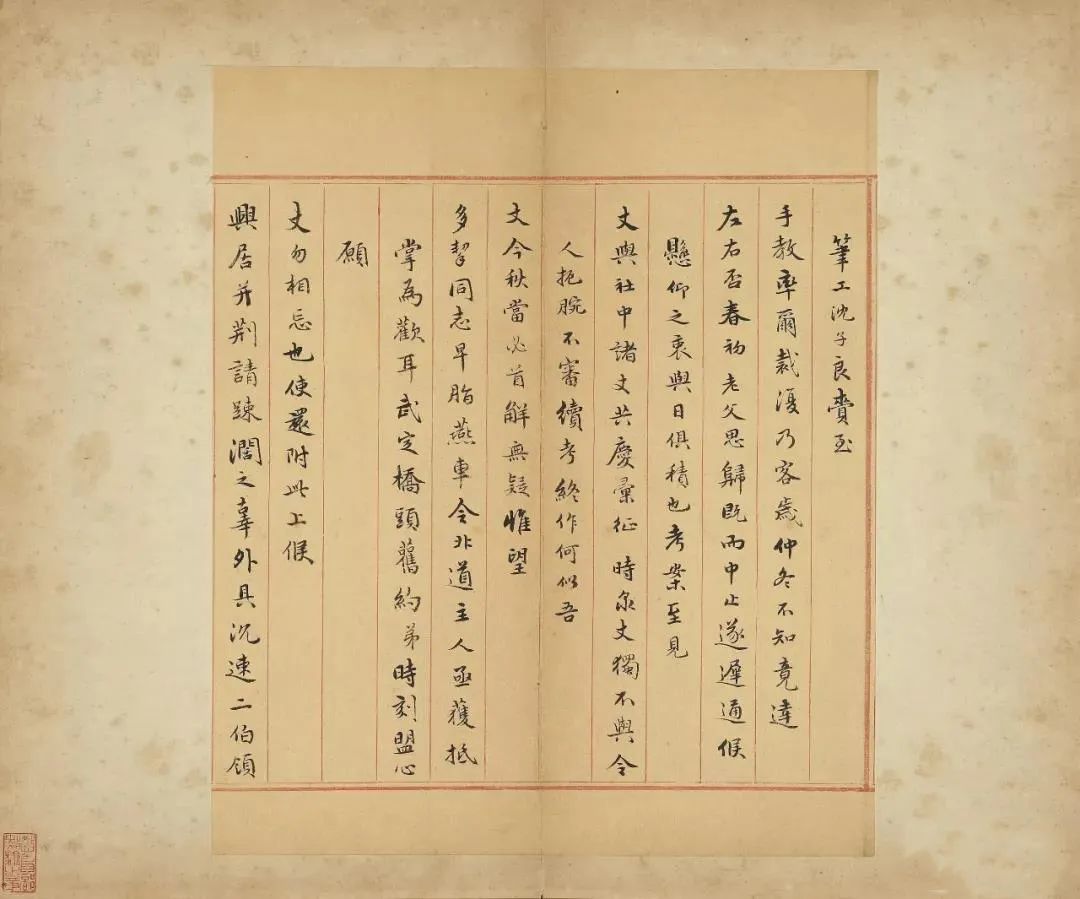 筆工沈子良賫至
手教率爾裁復乃客歲仲冬不知竟達
左右否春初老父思歸既而中止遂遲通候
懸仰之衷與日俱積也考案至見
丈與社中諸丈共慶彙征時泉丈獨不與令
人扼腕不審續考終作何似吾
丈今秋當必首解無疑惟望
多挈同志早脂燕車令北道主人亟獲抵
掌為歡耳武定橋頭舊約弟時刻盟心
願
丈勿相忘也使還附此上候
興居并荆請踈濶之辜外具沉速二伯領